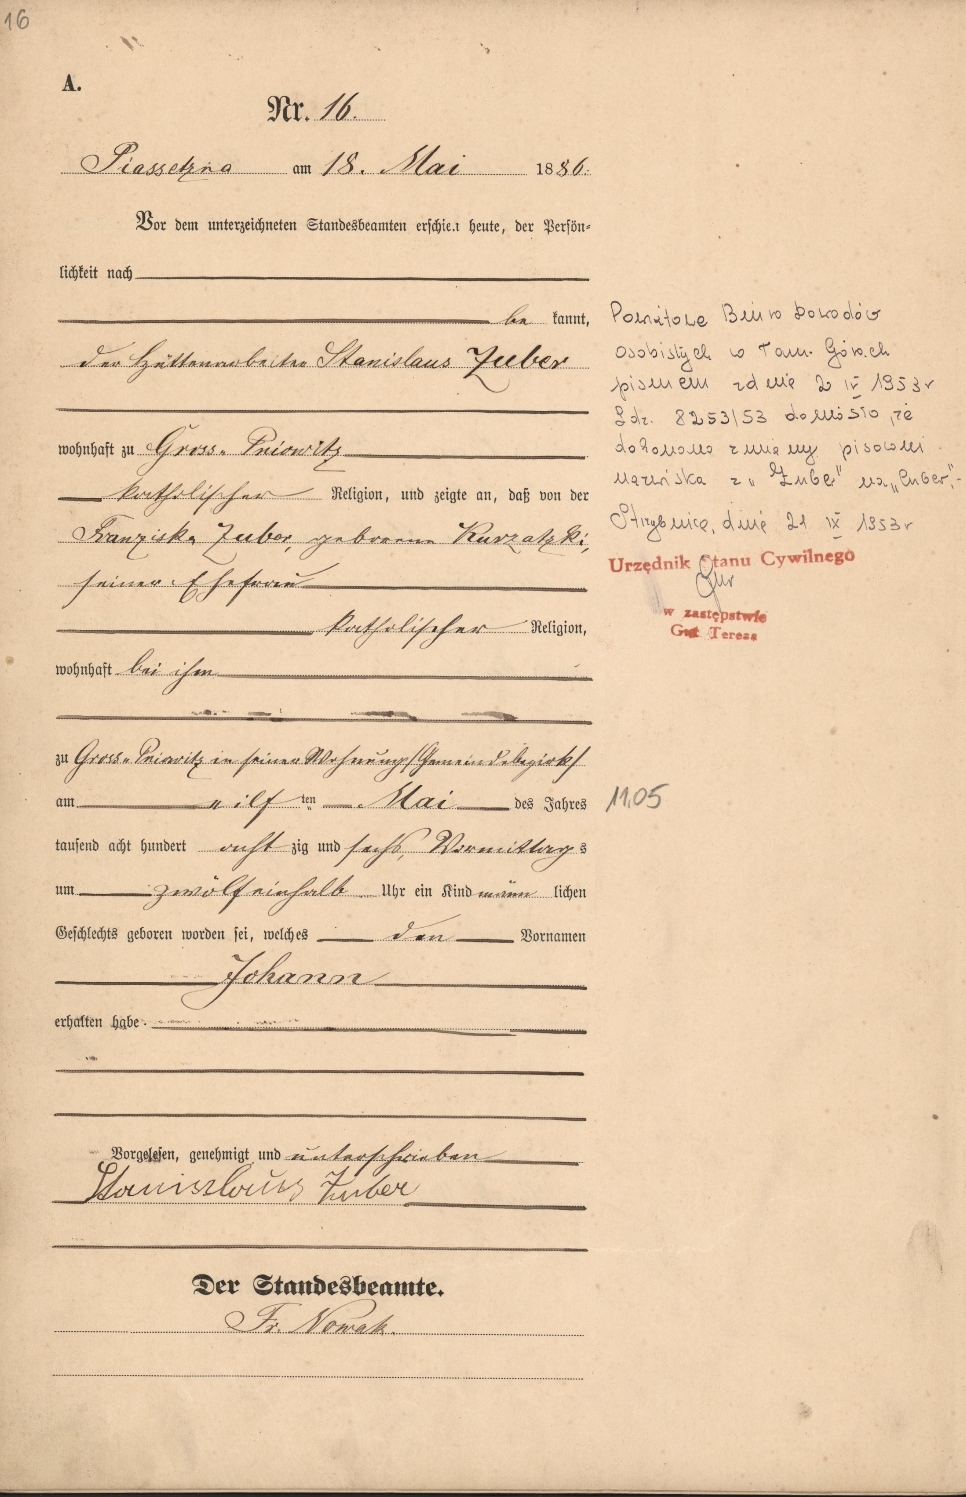 16
A.
Nr. 16.
Piassetzna am 18. Mai 1886.
Vor dem unterzeichneten Standesbeamten erschien heute, der Persön-
lichkeit nach
be kannt,
der Hüttenarbeiter Stanislaus Zuber
wohnhaft zu Gross-Priowitz
katholischer Religion, und zeigte an, daß von der
Franziska Zuber, geborene Kurzatzki,
seiner Ehefrau
katholischer Religion,
wohnhaft bei ihm
zu Gross-Priowitz in seiner Wohnung /Gemeindebezirk/
am eilf ten Mai des Jahres
tausend acht hundert acht zig und sechs, Vormittag s
um zwölfeinhalb Uhr ein Kind männ lichen
Geschlechts geboren worden sei, welches den Vornamen
Johann
erhalten habe.
Vorgelesen, genehmigt und unterschrieben
Stanislaus Zuber
Der Standesbeamte.
Fr. Nowak.
Powiatowe Biuro Dowodów
osobistych w Tarn. Górach
pismem z dnia 2 IV 1953 r
Ldz. 8253/53 doniosło, że
dokonano zmiany pisowni
nazwiska z "Zuber" na "Cuber",-
Strzybnica, dnia 21 IX 1953 r
Urzędnik Stanu Cywilnego
w zastępstwie
Teresa
11.05